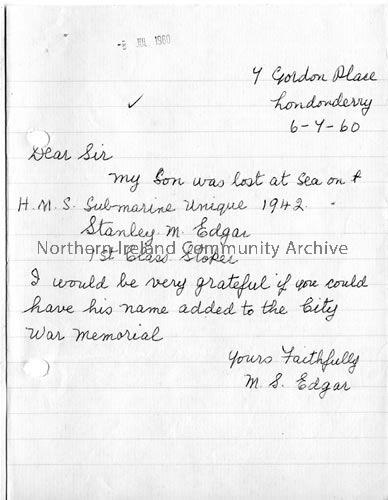 -8 JUL 1960
✓
7 Gordon Place
Londonderry
6-7-60
Dear Sir
My Son was lost at sea on
H.M.S. Submarine Unique 1942.
Stanley M. Edgar
Northern Ireland Community Archive
1st Class Stoker
I would be very grateful if you could
have his name added to the City
War Memorial
Yours Faithfully
M. S. Edgar